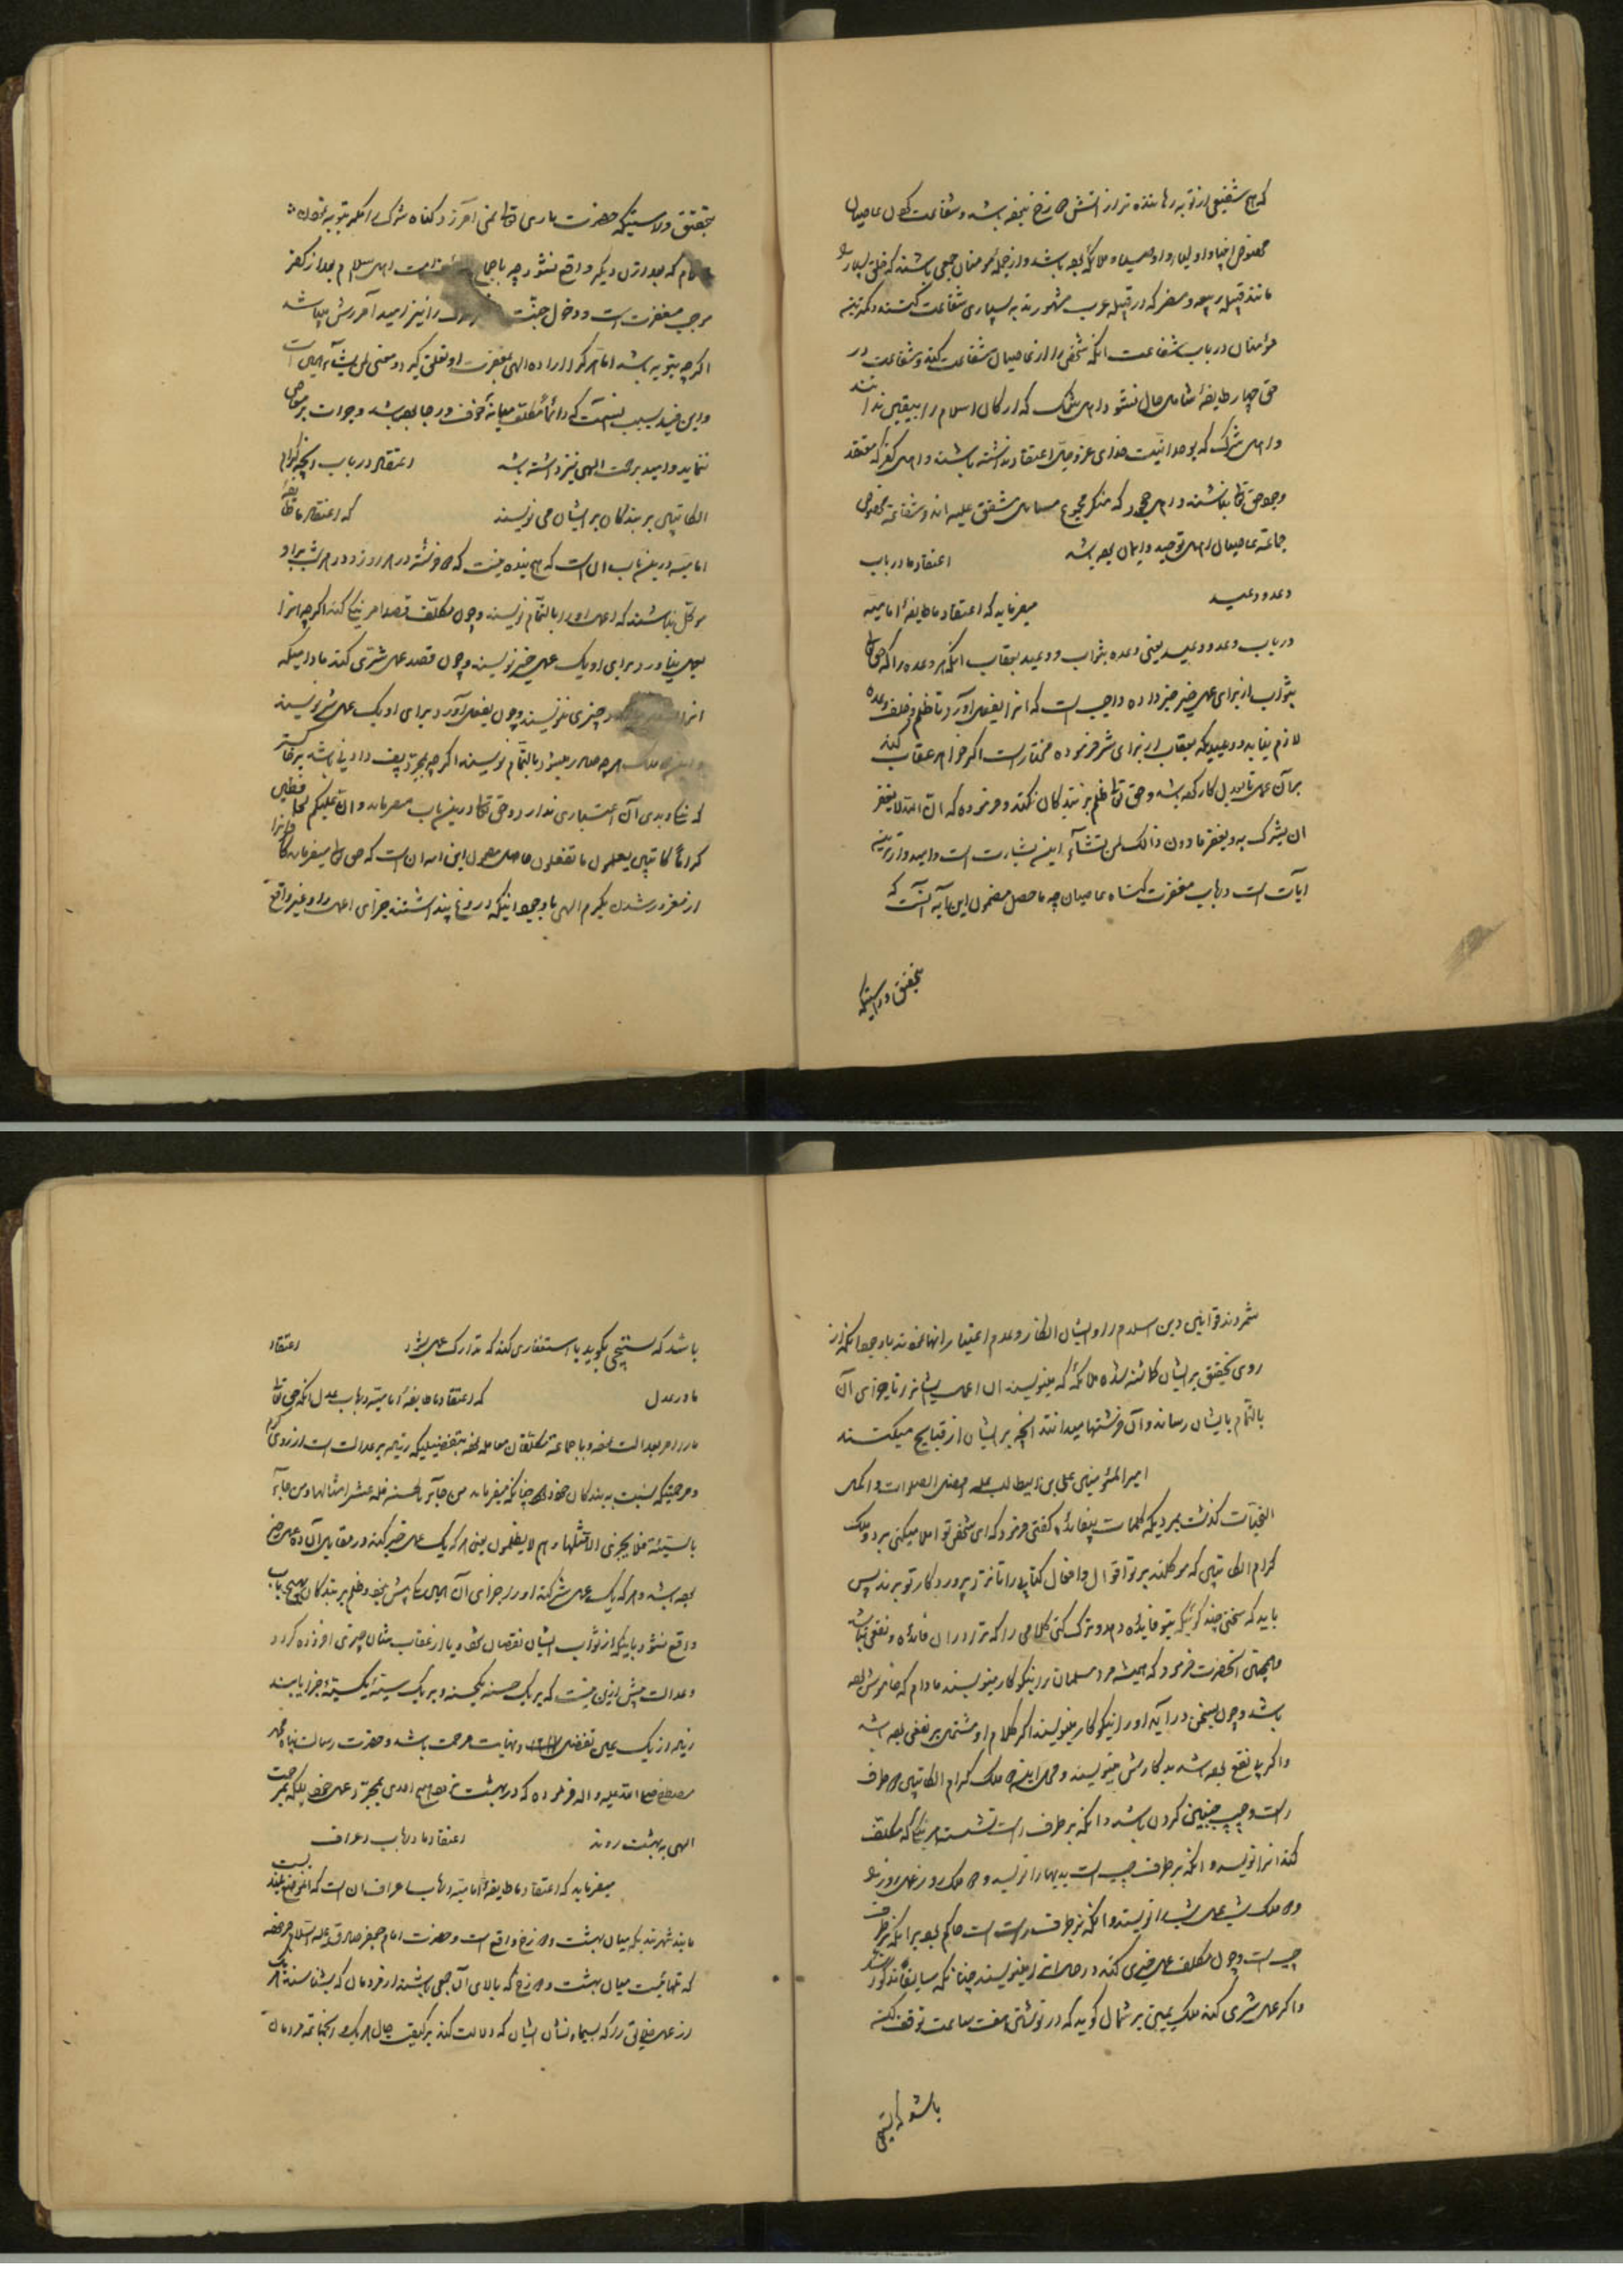 که هیچ شفیعی از توبه رهاننده تر از آتش دوزخ نبوده باشد و شفاعت عاصیان
مخصوص انبیا و اولیا و اوصیا و ملائکه بوده باشد و از جمله مؤمنان جمعی باشند که خلق بسیار را
مانند قبیله ربیعه و مضر که در قبیله عرب مشهورند به بسیاری شفاعت کنند و کمترینه
مؤمنان در باب شفاعت آنکه شخصی را از عاصیان شفاعت کند و شفاعت در
حق چهار طایفه شامل حال نشود اهل شک که ارکان اسلام را بیقین ندانند
و اهل شرک که بوحدانیت خدای عز و جل اعتقاد نداشته باشند و اهل کفر که معتقد
وجود حق تعالی نباشند و اهل جحود که منکر مجموع مسائل متفق علیه اند و شفاعت مخصوص
جماعت عاصیان اهل توحید و ایمان بوده باشد اعتقاد ما در باب
وعد و وعید میفرماید که اعتقاد ما طایفه امامیه
در باب وعد و وعید یعنی وعده بثواب و وعید بعقاب آنکه هر وعده را که حق تعالی
بثواب از برای عمل خیر خبر داده واجب است که آنرا بفعل آورد تا ظلم و خلف وعده
لازم نیاید و وعیدیکه بعقاب از برای شر فرموده مختار است اگر خواهد عقاب کند
بر آن عمل تا بعدل کار کرده باشد و حق تعالی ظلم بر بندگان نکند و فرموده که ان الله لا یغفر
ان یشرک به و یغفر ما دون ذلک لمن یشاء این بشارت است و امیدوارترینه
آیات است در باب مغفرت گناه عاصیان چه ماحصل مضمون این آیه آنست که
بتحقیق و راستیکه
بتحقیق و راستیکه حضرت باری تعالی نمی آمرزد گناه شرک را مگر بتوبه
که بعد از آن دیگر واقع نشود چه باجماع اهل اسلام بعد از کفر
موجب مغفرت است و دخول جنت را نیز امید آمرزش باشد
اگرچه بتوبه باشد اما هرگاه اراده الهی بمغفرت او تعلق گیرد و معنی لمن یشاء این است
و این قید بسبب آنست که دائما مکلف میانه خوف و رجا بوده باشد و جرأت بر معاصی
ننماید و امید برحمت الهی نیز داشته باشد اعتقاد در باب آنچه کرام
الکاتبین بر بندگان بر ایشان می نویسند که اعتقاد ما طایفه
امامیه درین باب آن است که هیچ بنده نیست که دو فرشته در هر روز و در هر شب بر او
موکل نباشند که اعمال او را بالتمام نویسند و چون مکلف قصد امر نیکی کند اگرچه آنرا
بعمل نیاورد برای او یک عمل خیر نویسند و چون قصد عمل شری کند مادامیکه
آنرا چیزی ننویسند و چون بفعل آورد برای او یک عمل شر نویسند
و این دو ملک هر چه صادر میشود بالتمام نویسند اگرچه بمجرد پف دادنی باشد بر خاکستر
که نیک و بدی آن اعتباری ندارد و حق تعالی درین باب میفرماید و ان علیکم لحافظین
کراما کاتبین یعلمون ما تفعلون حاصل مضمون این آیه آن است که حق تعالی میفرماید که
از مغرور شدن بکرم الهی با وجود اینکه دروغ پنداشتند جزای اعمال را و غیر واقع
شمردند قوانین دین اسلام را و ایشان انکار و عدم اعتبار آنها نمودند با وجود آنکه از
روی تحقیق بر ایشان گماشته شده ملائکه که مینویسند آن اعمال ایشان را تا جزای آن
بالتمام بایشان رساند و آن فرشتها میدانند آنچه بر ایشان از قبایح میکنند
امیر المؤمنین علی بن ابیطالب علیه افضل الصلوات و اکمل
التحیات گذشت بمردیکه کلمات بیفایده گفتی فرمود که ای شخص تو املا میکنی بر دو ملک
کرام الکاتبین که موکلند بر تو اقوال و افعال کتابی را تا نزد پروردگار تو برند پس
باید که سخنی چند گوئی که بتو فایده دهد و ترک کنی کلامی را که ترا در آن فائده و نفعی نباشد
و همچنین آنحضرت فرمود که همیشه مرد مسلمان را نیکوکار مینویسند مادام که خاموش بوده
باشد و چون بسخن درآید او را نیکوکار مینویسند اگر کلام او مشتمل بر نفعی بوده باشد
و اگر بی نفع بوده باشد بدکارش مینویسند و محل این دو ملک کرام الکاتبین دو طرف
راست و چپ جنبین گردن باشد و آنکه بر طرف راست نشسته هر نیکی که مکلف
کند آنرا نویسد و آنکه بر طرف چپ است بدیها را نویسد و دو ملک روز عمل روز را
و دو ملک شب عمل شب را نویسند و آنکه بر طرف راست است حاکم بوده بر آنکه بر طرف
چپ است و چون مکلف عمل خیری کند در حال آنرا مینویسند چنانکه سابقا مذکور شد
و اگر عمل شری کند ملک یمین بر شمال گوید که در نوشتن هفت ساعت توقف کن
باشد که تسبیحی
باشد که تسبیحی بگوید یا استغفاری کند که تدارک عمل بد شود اعتقاد
ما در عدل که اعتقاد ما طایفه امامیه در باب عدل آنکه حق تعالی
ما را امر بعدالت نموده و با جماعت مکلفان معامله نموده بتفضلیکه زیاده بر عدالت است از روی کرم
و مرحمتیکه نسبت به بندگان خود دارد چنانکه میفرماید من جاء بالحسنة فله عشر امثالها و من جاء
بالسیئة فلا یجزی الا مثلها و هم لا یظلمون یعنی هر که یک عمل خیر کند در مقابل آن ده عمل خیر
بوده باشد و هر که یک عمل شر کند او را جزای آن یکی بیش نبود و ظلم بر بندگان بهیچ باب
واقع نشود باینکه از ثواب ایشان نقصان شود یا از عقاب بر ایشان چیزی افزوده گردد
و عدالت بیش ازین نیست که بر یک حسنه یک حسنه و بر یک سیئه یک سیئه جزا یابند
زیاده از یک بمحض تفضل و نهایت مرحمت باشد و حضرت رسالت پناه محمد
مصطفی صلی الله علیه و اله فرموده که در بهشت نرود هیچ احدی بمجرد عمل خود بلکه بمرحمت
الهی به بهشت روند اعتقاد ما در باب اعراف
میفرماید که اعتقاد ما طایفه امامیه در باب اعراف آن است که آن موضع بلندیست
مانند شهر بند که میان بهشت و دوزخ واقع است و حضرت امام جعفر صادق علیه السلام فرموده
که تلهائیست میان بهشت و دوزخ که بالای آن جمعی باشند از مردمان که بشناسند هر یک
از اهل را که بسیما و نشان ایشان که دلالت کند بر کیفیت حال هر یک و آنجماعت مردمان